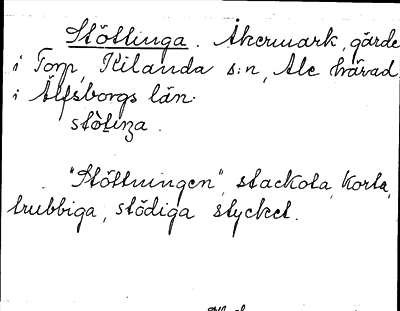 Stöttinga. Åkermark, gärde
i Torp, Kilanda s:n, Ale härad
i Älfsborgs län.
"Stöttningen", stackota, korta,
trubbiga, stödiga stycket.